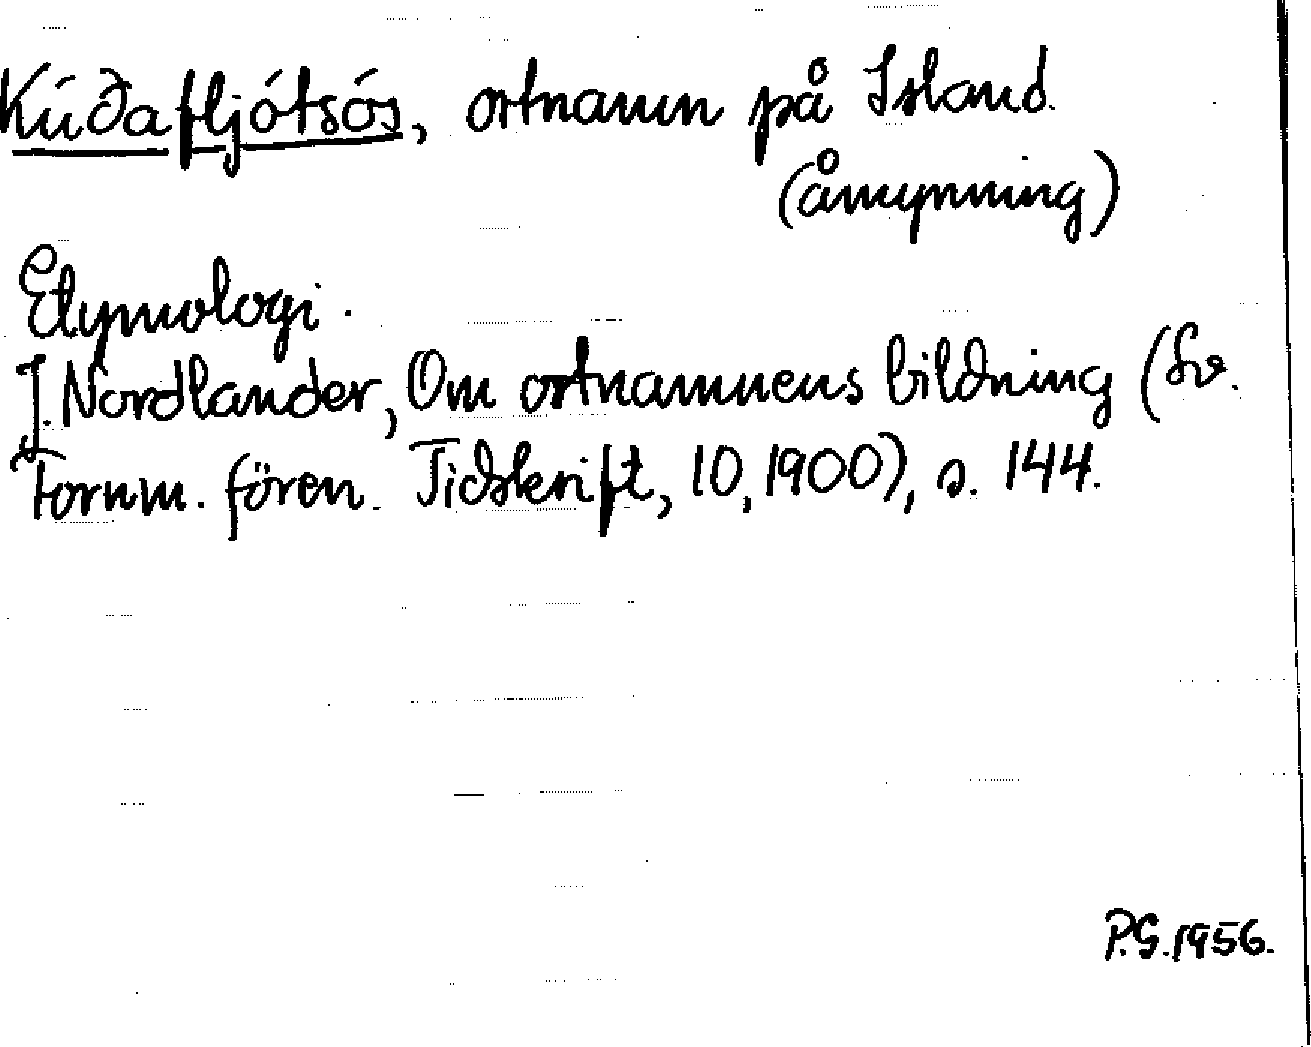 Kúðafljótsós, ortnamn på Island.
(åmynning)
Etymologi.
J. Nordlander, Om ortnamnens bildning (Sv.
Fornm. fören. Tidskrift, 10, 1900), s. 144.
P.G. 1956.